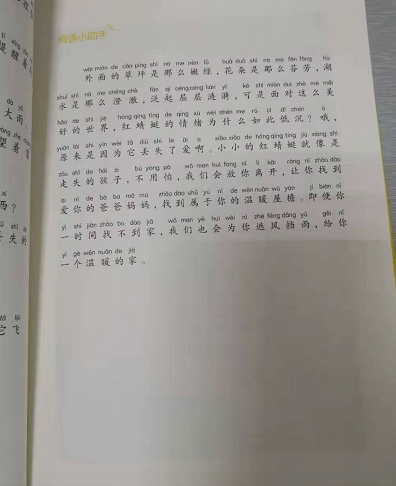 阅读小助手
wài miàn de cǎo píng shì nà me nèn lǜ huā duǒ shì nà me fēn fāng hú
外面的草坪是那么嫩绿，花朵是那么芬芳，湖
shuǐ shì nà me chéng chè fàn qǐ céng céng lián yī kě shì miàn duì zhè me měi
水是那么澄澈，泛起层层涟漪，可是面对这么美
hǎo de shì jiè hóng qīng tíng de qíng xù wèi shén me rú cǐ dī chén ò
好的世界，红蜻蜓的情绪为什么如此低沉？哦，
yuán lái shì yīn wèi tā diū shī le ài a xiǎo xiǎo de hóng qīng tíng jiù xiàng shì
原来是因为它丢失了爱啊。小小的红蜻蜓就像是
zǒu shī de hái zi bú yòng pà wǒ men huì fàng nǐ lí kāi ràng nǐ zhǎo dào
走失的孩子，不用怕，我们会放你离开，让你找到
ài nǐ de bà ba mā mu zhǎo dào shǔ yú nǐ de wēn nuǎn wū yán jí biàn nǐ
爱你的爸爸妈妈，找到属于你的温暖屋檐。即便你
yì shí jiān zhǎo bú dào jiā wǒ men yě huì wèi nǐ zhē fēng dǎng yǔ gěi nǐ
一时间找不到家，我们也会为你遮风挡雨，给你
yí gè wēn nuǎn de jiā
一个温暖的家。
提醒着
大雨
望着
西？
丢失的
它飞